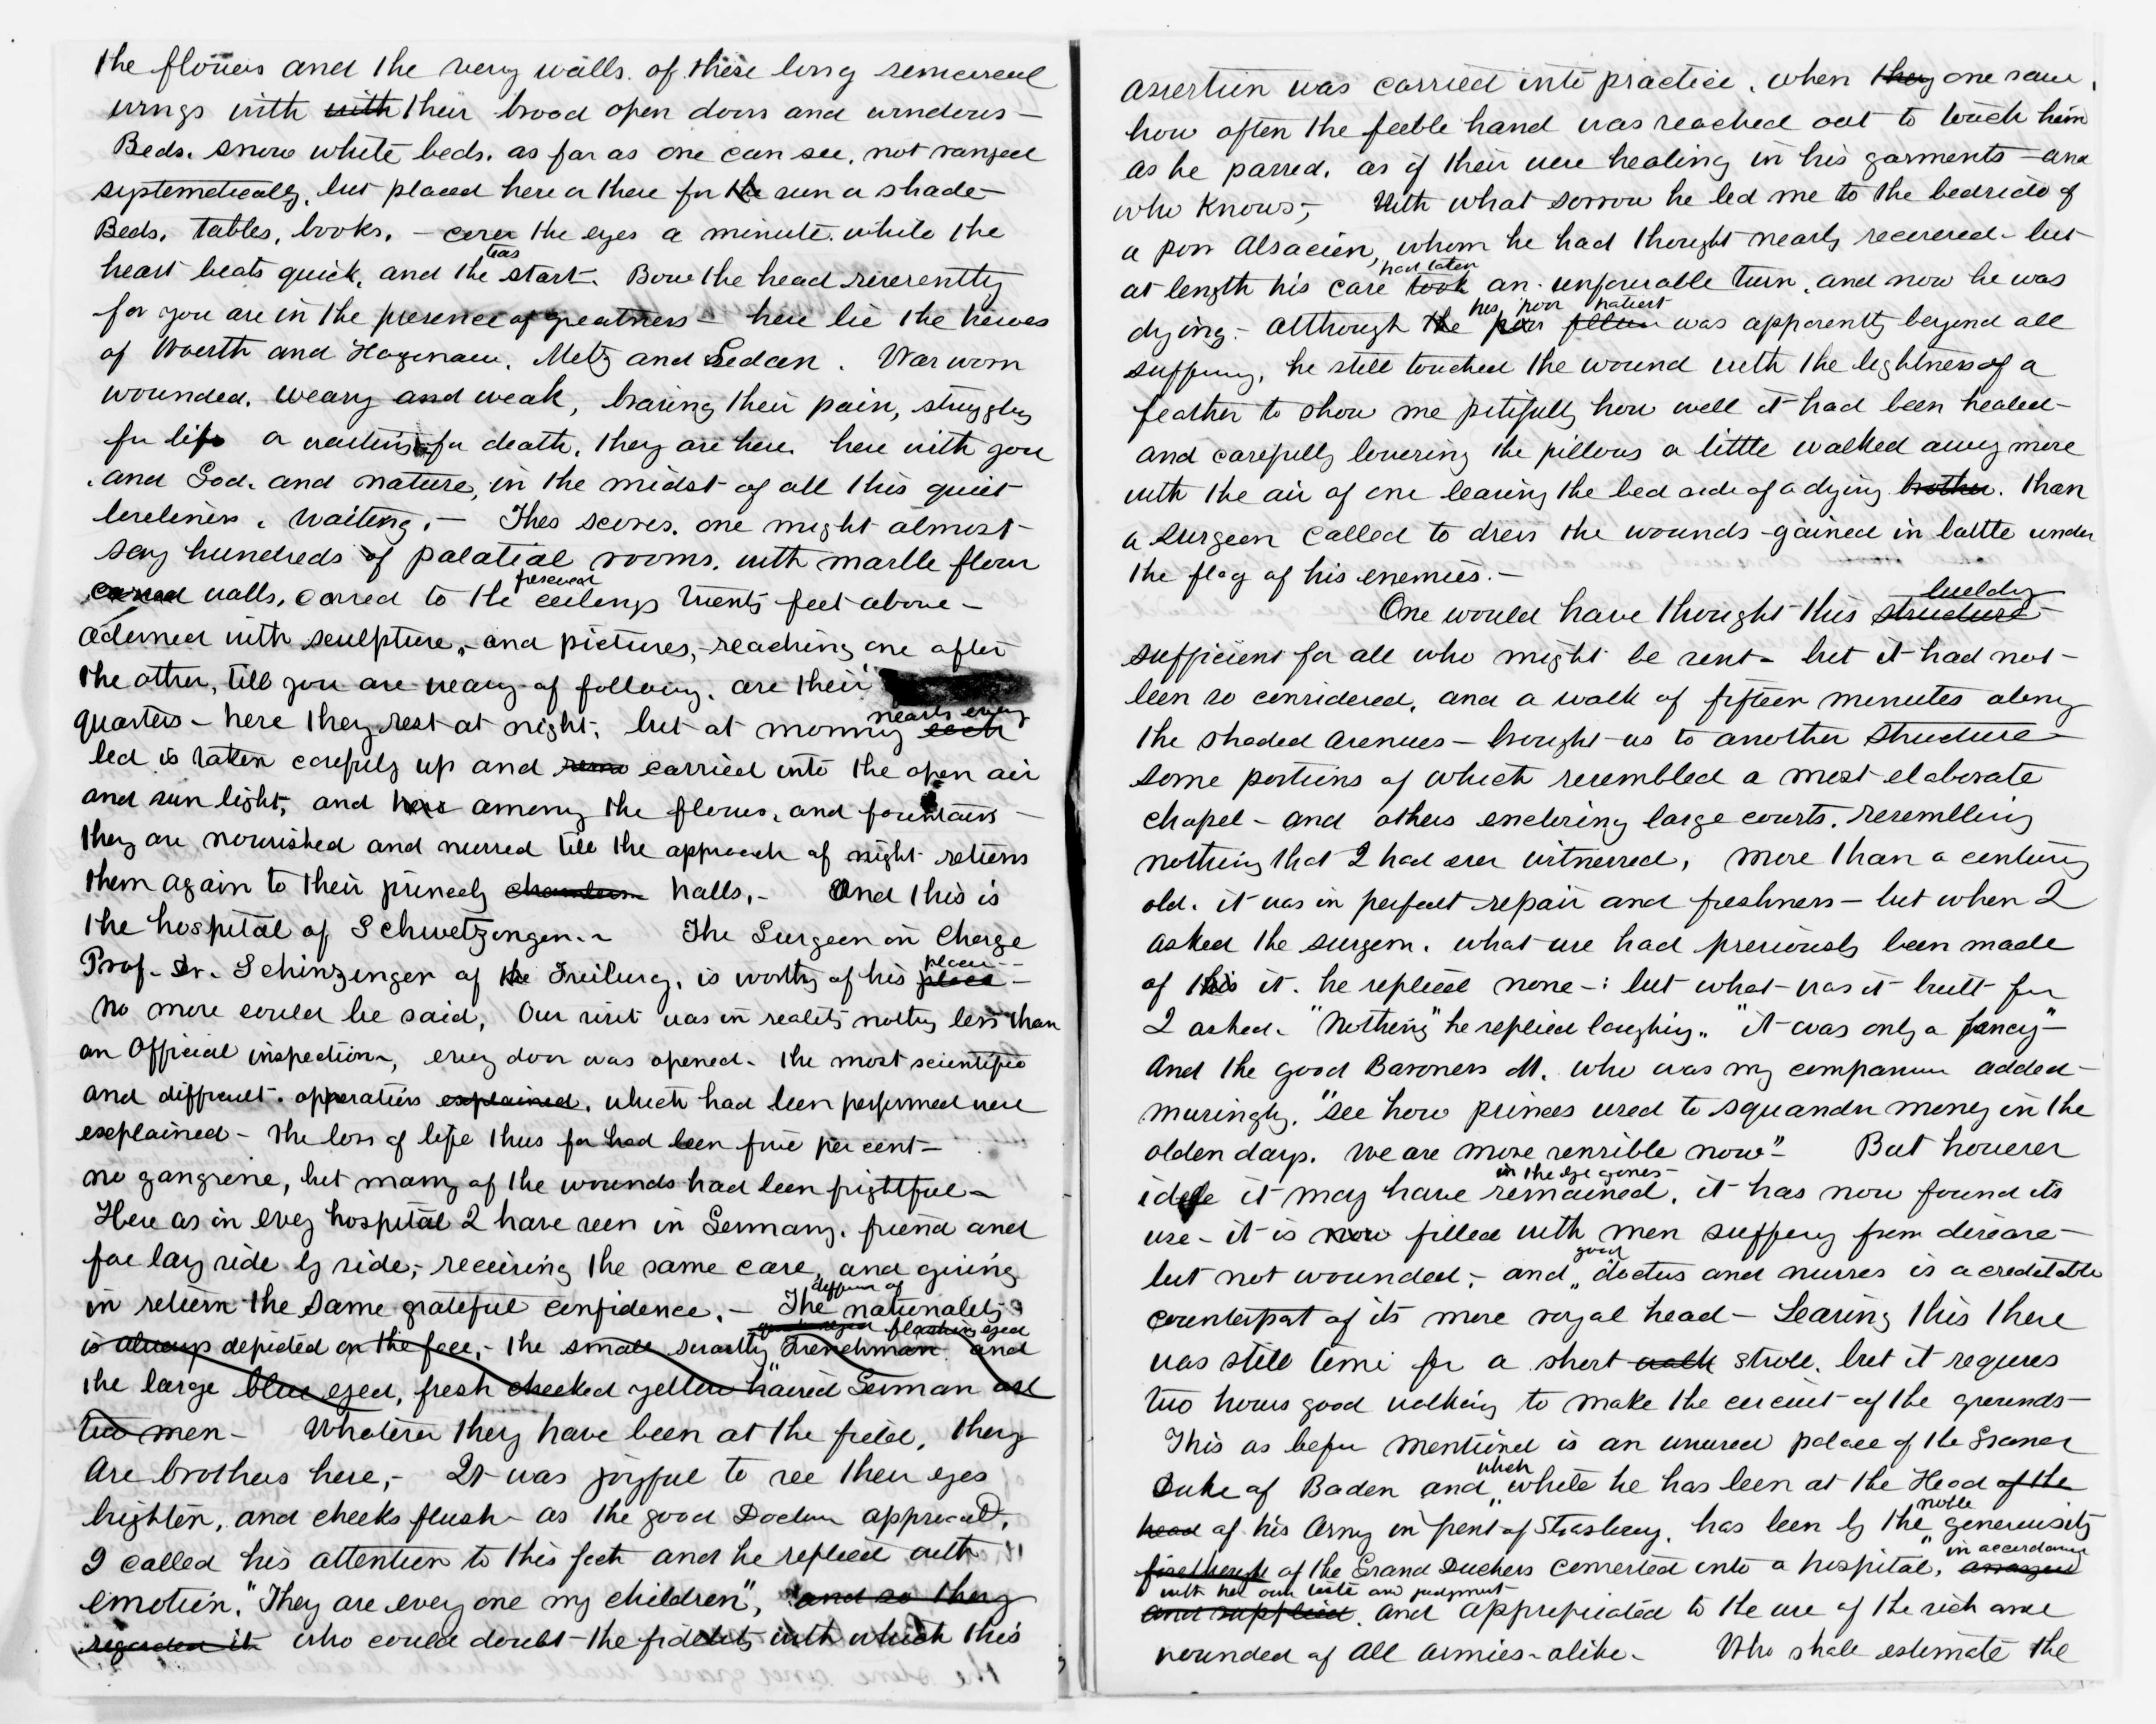 the flowers and the very walls. of these long semicircul
wings with with their broad open doors and windows –
Beds. snow white beds. as far as one can see, not ranged
systemetically, but placed here or there for the sun or shade –
Beds, tables, books, – cover the eyes a minute. while the
tears
heart beats quick, and the start. Bow the head reverently
for you are in the presence of greatness – here lie the heroes
of Woerth and Hagenau, Metz and Sedan. War worn
wounded, weary and weak, braving their pain, struggling
for life or waiting for death, they are here. here with you
and God. and nature, in the midst of all this quiet
loveliness, waiting. – Thes scores. one might almost
say hundreds of palatial rooms. with marble floors
frescoed
carved walls, carved to the ceilings twenty feet above –
adorned with sculpture, and pictures, – reaching one after
the other, till you are weary of following. are their
quarters – here they rest at night, but at morning each
nearly every
bed is taken carefuly up and carried into the open air
and sun light, and here among the flowers, and fountains –
they are nourished and nursed till the approach of night returns
them again to their princely chambers halls. – And this is
the hospital of Schwetzongen. – The Surgeon in Charge
Prof. Dr. Schinzinger of the Freiburg, is worthy of his place –
place –
No more could be said, Our visit was in reality nothing less than
an Official inspection, every door was opened. the most scientific
and difficult. opperations explained. which had been performed were
exeplained – The loss of life thus far had been five per cent –
no gangrene, but many of the wounds had been frightful –
Here as in every hospital I have seen in Germany. friend and
foe lay side by side, – receiving the same care, and giving
differen of
in return the same grateful confidence. – The nationality
flashing eyed
is always depicted on the face, – the small swarthy Frenchman and
the large blue eyed, fresh cheeked yellow haired German are
two men – Whatever they have been at the field, they
are brothers here, – It was joyful to see their eyes
brighten, and cheeks flush – as the good Doctor approacd.
I called his attention to this fact and he replied with
emotion, "They are every one my children", and so they
regarded it who could doubt the fidelity with which this
assertion was carried into practice, when they one saw,
how often the feeble hand was reached out to touch him
as he passed, as if their were healing in his garments – and
who knows, – With what sorrow he led me to the bedside of
a poor Alsacien, whom he had thought nearly recovered – but
had taken
at length his case took an unfavorable turn, and now he was
his poor patient
dying – although the poor fellow was apparently beyond all
suffering, he still touched the wound with the lightness of a
feather to show me pitifully how well it had been healed –
and carefully lowering the pillows a little walked away more
with the air of one leaving the bed side of a dying brother. than
a surgeon called to dress the wounds – gained in battle under
the flag of his enemies. –
building
One would have thought this structure –
sufficient for all who might be sent – but it had not –
been so considered, and a walk of fifteen minutes along
the shaded avenues – brought us to another structure –
some portions of which resembled a most elaborate
chapel – and others enclosing large courts. resembling
nothing that I had ever witnessed, more than a century
old. it was in perfect repair and freshness – but when I
asked the surgeon. what use had previously been made
of this it. he replied none – : but what was it built for
I asked. "Nothing" he replied laughing.. "it was only a fancy" –
And the good Baroness M. who was my companion added –
musingly. "see how princes used to squander money in the
olden days. We are more sensible now" – But however
in the bye gones –
idle it may have remained, it has now found its
use – it is now filled with men suffering from disease –
good
but not wounded; – and doctors and nurses is a creditable
counterpart of its more royal head – Leaving this there
was still time for a short walk stroll. but it requires
two hours good walking to make the circuit of the grounds –
This as befor mentioned is an unused palace of the Grand
which
Duke of Baden and while he has been at the Head of the
noble
head of his Army in front of Strasburg, has been by the generousity
in accordance
forethought of the Grand Duchess converted into a hospital, arranged
with her own taste and judgment –
and supplied. and apprepriated to the use of the sick and
wounded of all armies – alike – Who shall estimate the